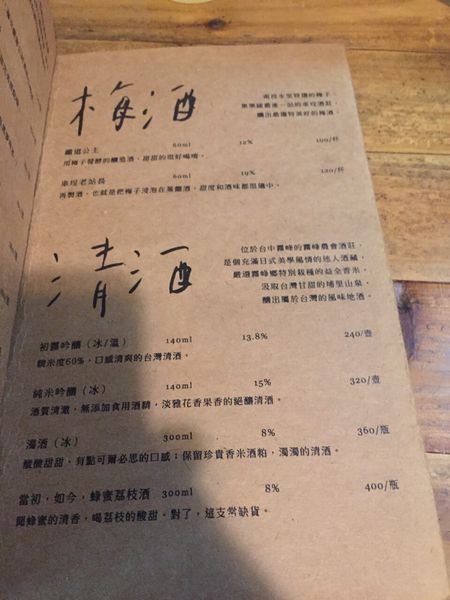 梅酒
南投水里特選的梅子，
集集線最後一站的車埕酒莊，
釀出最獨特美好的梅酒。
鐵道公主 60ml 12% 190/杯
用梅子發酵的釀造酒，甜甜的很好喝唷。
車埕老站長 60ml 19% 120/杯
再製酒，也就是把梅子浸泡在蒸餾酒，甜度和酒味都很適中。
清酒
位於台中霧峰的霧峰農會酒莊，
是個充滿日式美學風情的迷人酒藏，
嚴選霧峰鄉特別栽種的益全香米，
汲取台灣甘甜的埔里山泉，
釀出屬於台灣的風味地酒。
初霧吟釀（冰/溫） 140ml 13.8% 240/壺
精米度60%，口感清爽的台灣清酒。
純米吟釀（冰） 140ml 15% 320/壺
酒質清澈，無添加食用酒精，淡雅花香果香的絕釀清酒。
濁酒（冰） 300ml 8% 360/瓶
酸酸甜甜、有點可爾必思的口感；保留珍貴香米酒粕，濁濁的清酒。
當初，如今，蜂蜜荔枝酒 300ml 8% 400/瓶
聞蜂蜜的清香，喝荔枝的酸甜。對了，這支常缺貨。